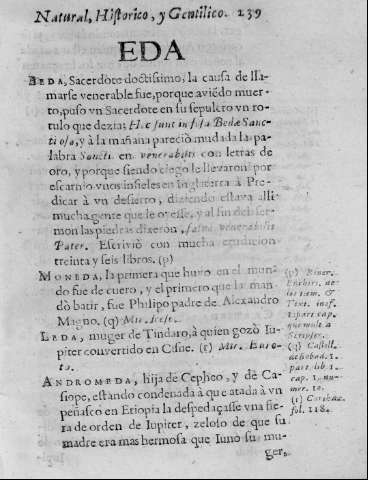 Natural, Historico, y Gentilico. 239
EDA
BEDA, Sacerdote doctissimo, la causa de lla-
marse venerable fue, porque aviẽdo muer-
to, puso vn Sacerdote en su sepulcro vn ro-
tulo que dezia: Hac sunt in fosa Bedæ Sanc-
ti osa, y à la mañana pareciò mudada la pa-
labra Sancti. en venerabilis con letras de
oro, y porque siendo ciego le llevaron por
escarnio vnos infieles en Inglaterra à Pre-
dicar à vn desierto, diziendo estava alli
mucha gente que le oyesse, y al fin del ser-
mon las piedras dixeron, salve venerabilis
Pater. Escriviò con mucha erudicion
treinta y seis libros. (p)
MONEDA, la primera que huvo en el mun-
do fue de cuero, y el primero que la man-
dò batir, fue Philipo padre de Alexandro
Magno. (q) Mir.
LEDA, muger de Tindaro, à quien gozò Iu-
piter convertido en Cisne. (r) Mir. Euro-
ta.
ANDROMEDA, hija de Cepheo, y de Ca-
siope, estando condenada à que atada à vn
peñasco en Etiopia la despedaçasse vna fie-
ra de orden de Iupiter, zeloso de que su
madre era mas hermosa que Iuno su mu-
ger,
(p)
Text.
1. part. cap.
(q) Castill.
1.
part. lib. 1.
cap. 1. nu-
mer. 10.
(r)
fol. 118.